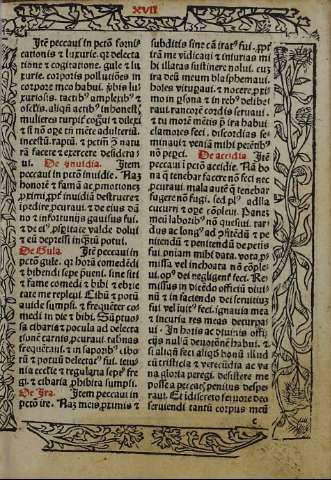 XVII
Itē peccaui in pctō forni
cationis & luxurie. qz delecta
tione & cogitatione. gule & lu
xurie. corporis pollutiōes in
corpore meo habui. ꝓhis lu
xuriosis. tactib⁹ amplexib⁹ &
osculis. aliqñ actib⁹ inhonest.
mulieres turpit̄ cogui & dilexi
& si nō ope tn̄ mēte adulteriū.
incestū raptū. & pctm̄ ɔ natu
rā facere & exercere desidera
ui. De Inuidia. Item
peccaui in pctō inuidie. Nā
honorē & famā ac ꝓmotionez
ꝓximi, ꝓpt̄ inuidiā destruere &
ipedire ꝓcuraui. & de eius dā
no & infortunijs gauisus fui.
& de ei⁹ ꝓspitate valde dolui
& eū deptessi inq̄tū potui.
De Gula. Itē peccaui in
pctō gule. qz horā comedēdi
& bibendi sepe ꝓueni. sine siti
& fame comedi & bibi & ebrie
tate me repleui. Cibū & potū
auide sumpsi. & frequēter co
medi in die & bibi. Sūptuo
sa cibaria & pocula ad delecta
tionē carnis ꝓcuraui. tabnas
frequētaui. & in saporib⁹. cibo
rū & potuū delectat⁹ fui. ieiu
nia ecclīe & regularia sepe fre
gi. & cibaria ꝓhibita sumpsi.
De Ira. Item peccaui in
pctō ire. Nā meis ꝓximis &
subditis sine cā irat⁹ fui. ꝓpt̄
irā me vidicagi & iniurias mi
hi illatas sustinere nolui. cuz
ira deū meum blasphemaui.
hoies vitugaui. & nocere. ꝓxi
mo in ꝑsona & in reb⁹ delibe
raui rancorē cordis seruaui.
& tu motē mētis ꝑ ira habui
clamores feci. discordias se
minaui & veniā mihi petēti⁹
nō pepci. De accidia Itē
peccaui in pctō acidie. Nā bo
na q̄ tenebar facere nō feci nec
ꝓcuraui. mala autē q̄ tenebar
fugere nō fugi. sed pl⁹ ad illa
cucurri & ope cōpleui. Panez
mei laborib⁹ nō quesiui. tar
dus ac long⁹ ad ɔfitēdū & pe
nitendū & penitendū de petis
fui. pniam mihi datā. vota. ꝓ
missa vel inchoata nō cōple
ui. op⁹ dei negligent̄ feci. Re
missus in dicēdo officiū diui
nū & in faciendo dei seruitiuz
fui. vel fuit⁹ feci. ignauia mea
& incuria res meas deturpa
ui. In horis ac diuinis offi
cijs nullā deuotionē habui. &
si aliqñ feci aliqd boni. illud
cū tristicia & verecūdia ac va
na gloria peregi. desistere me
posse a pcc̄as. penitus despe
raui. Et idiscreto feruore deo
seruiendi tantū corpus meū
c